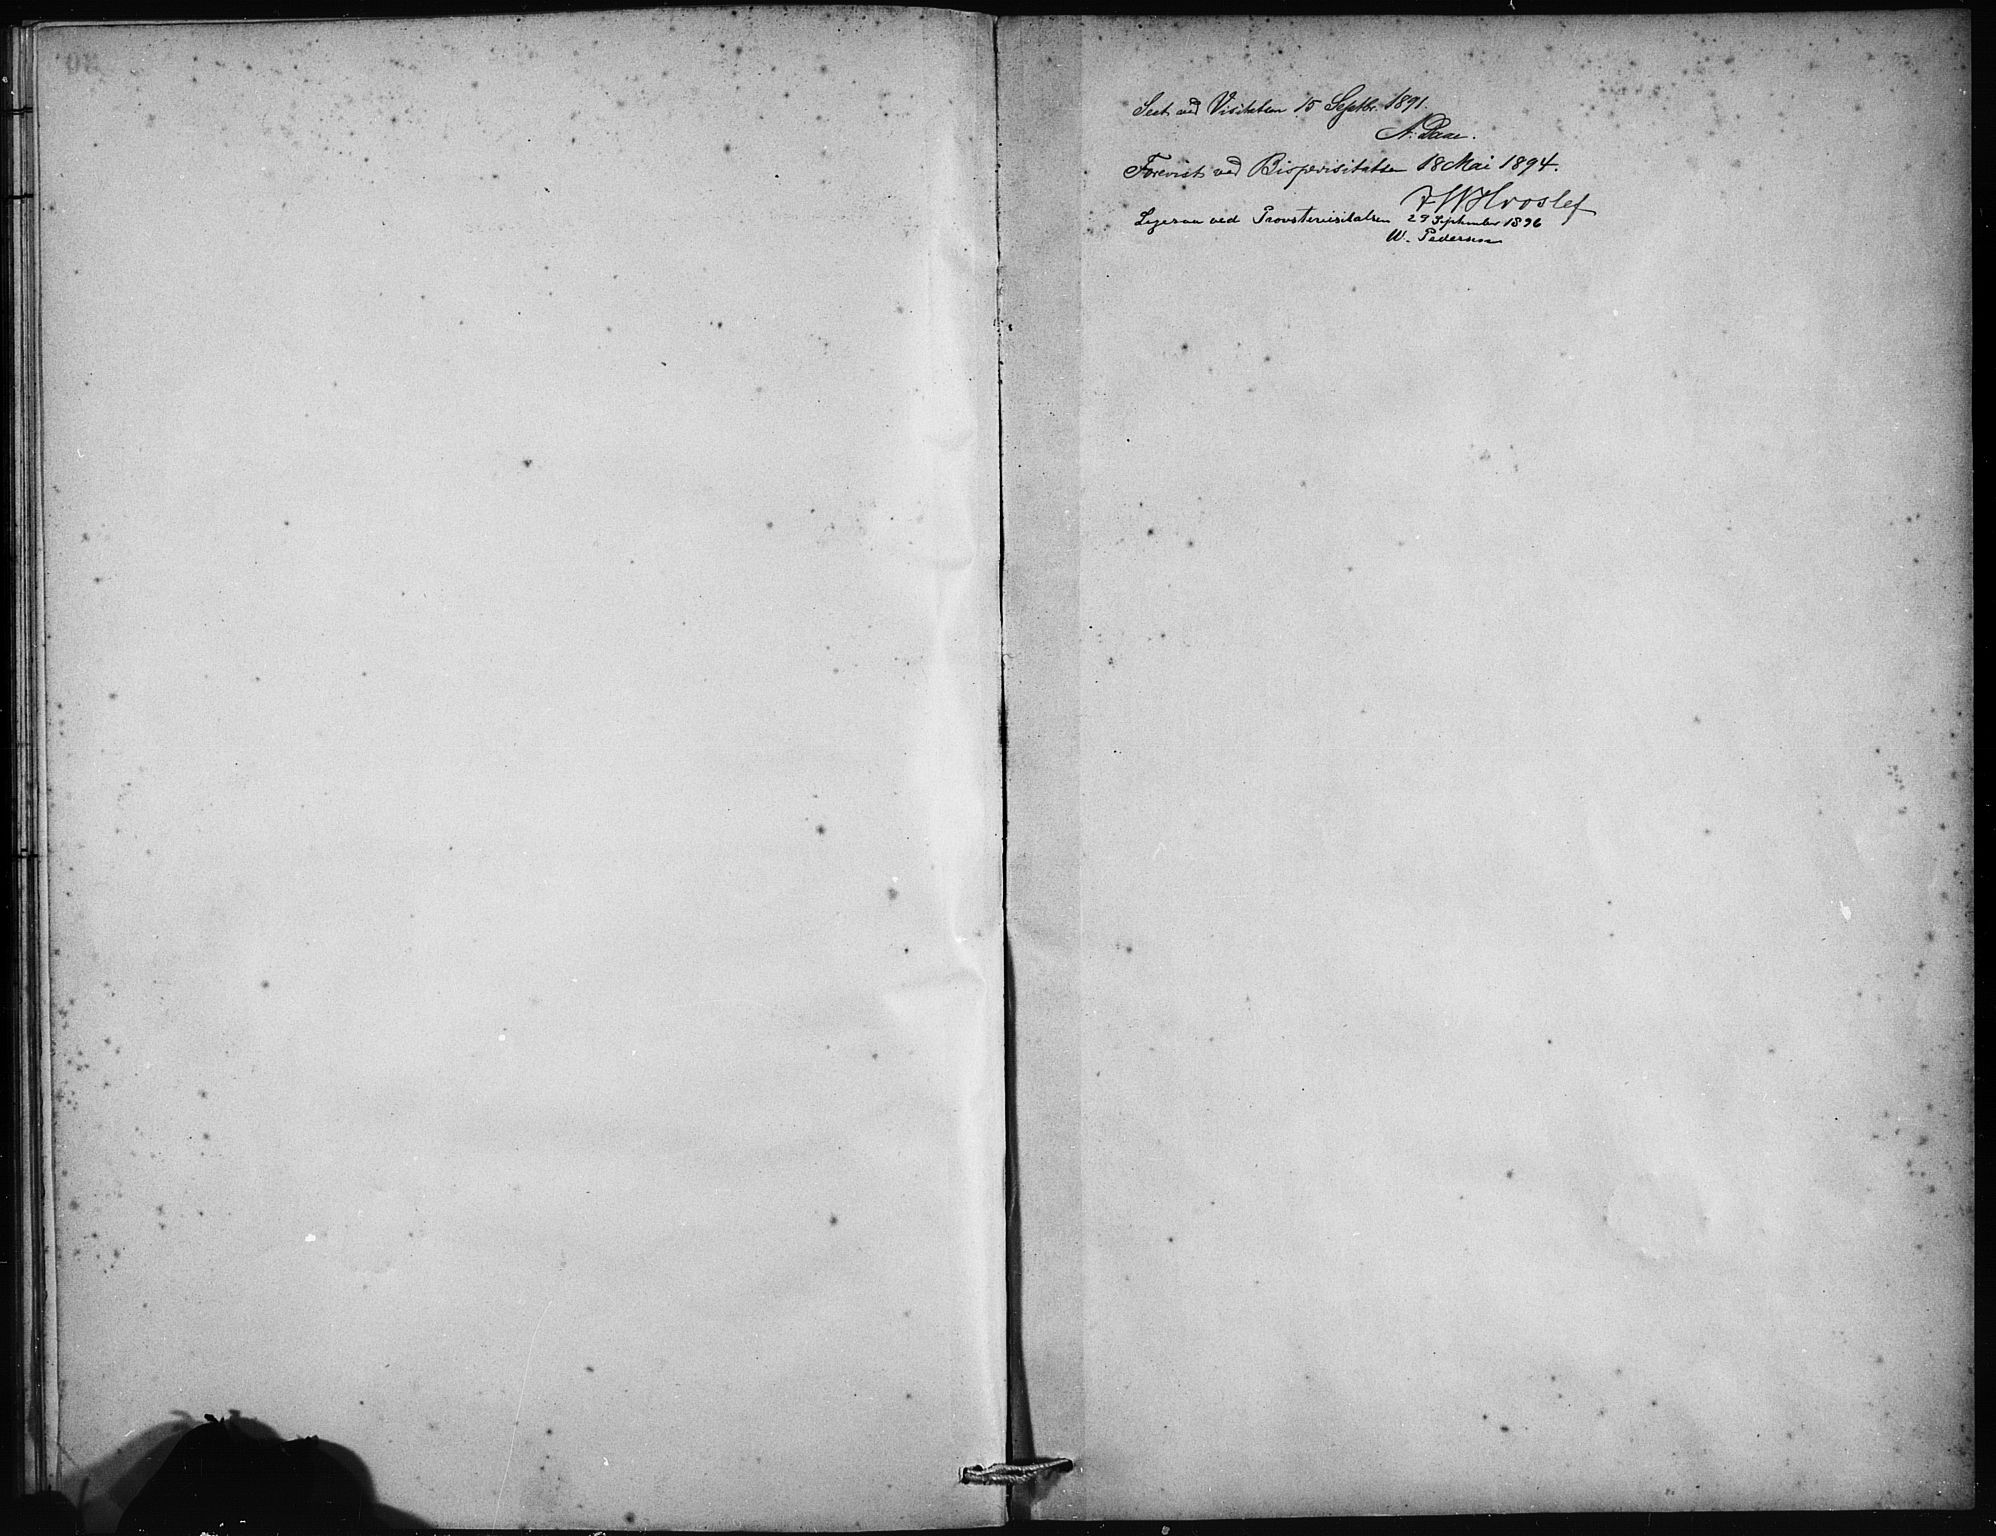 Seet ved Visitatsen 15 Septbr. 1891.
N. Daae.
Forevist ved Bispevisitatsen 18 Mai 1894.
F W Hvoslef
Ligesaa ved Provstevisitatsen 29 September 1896
W. Pedersen